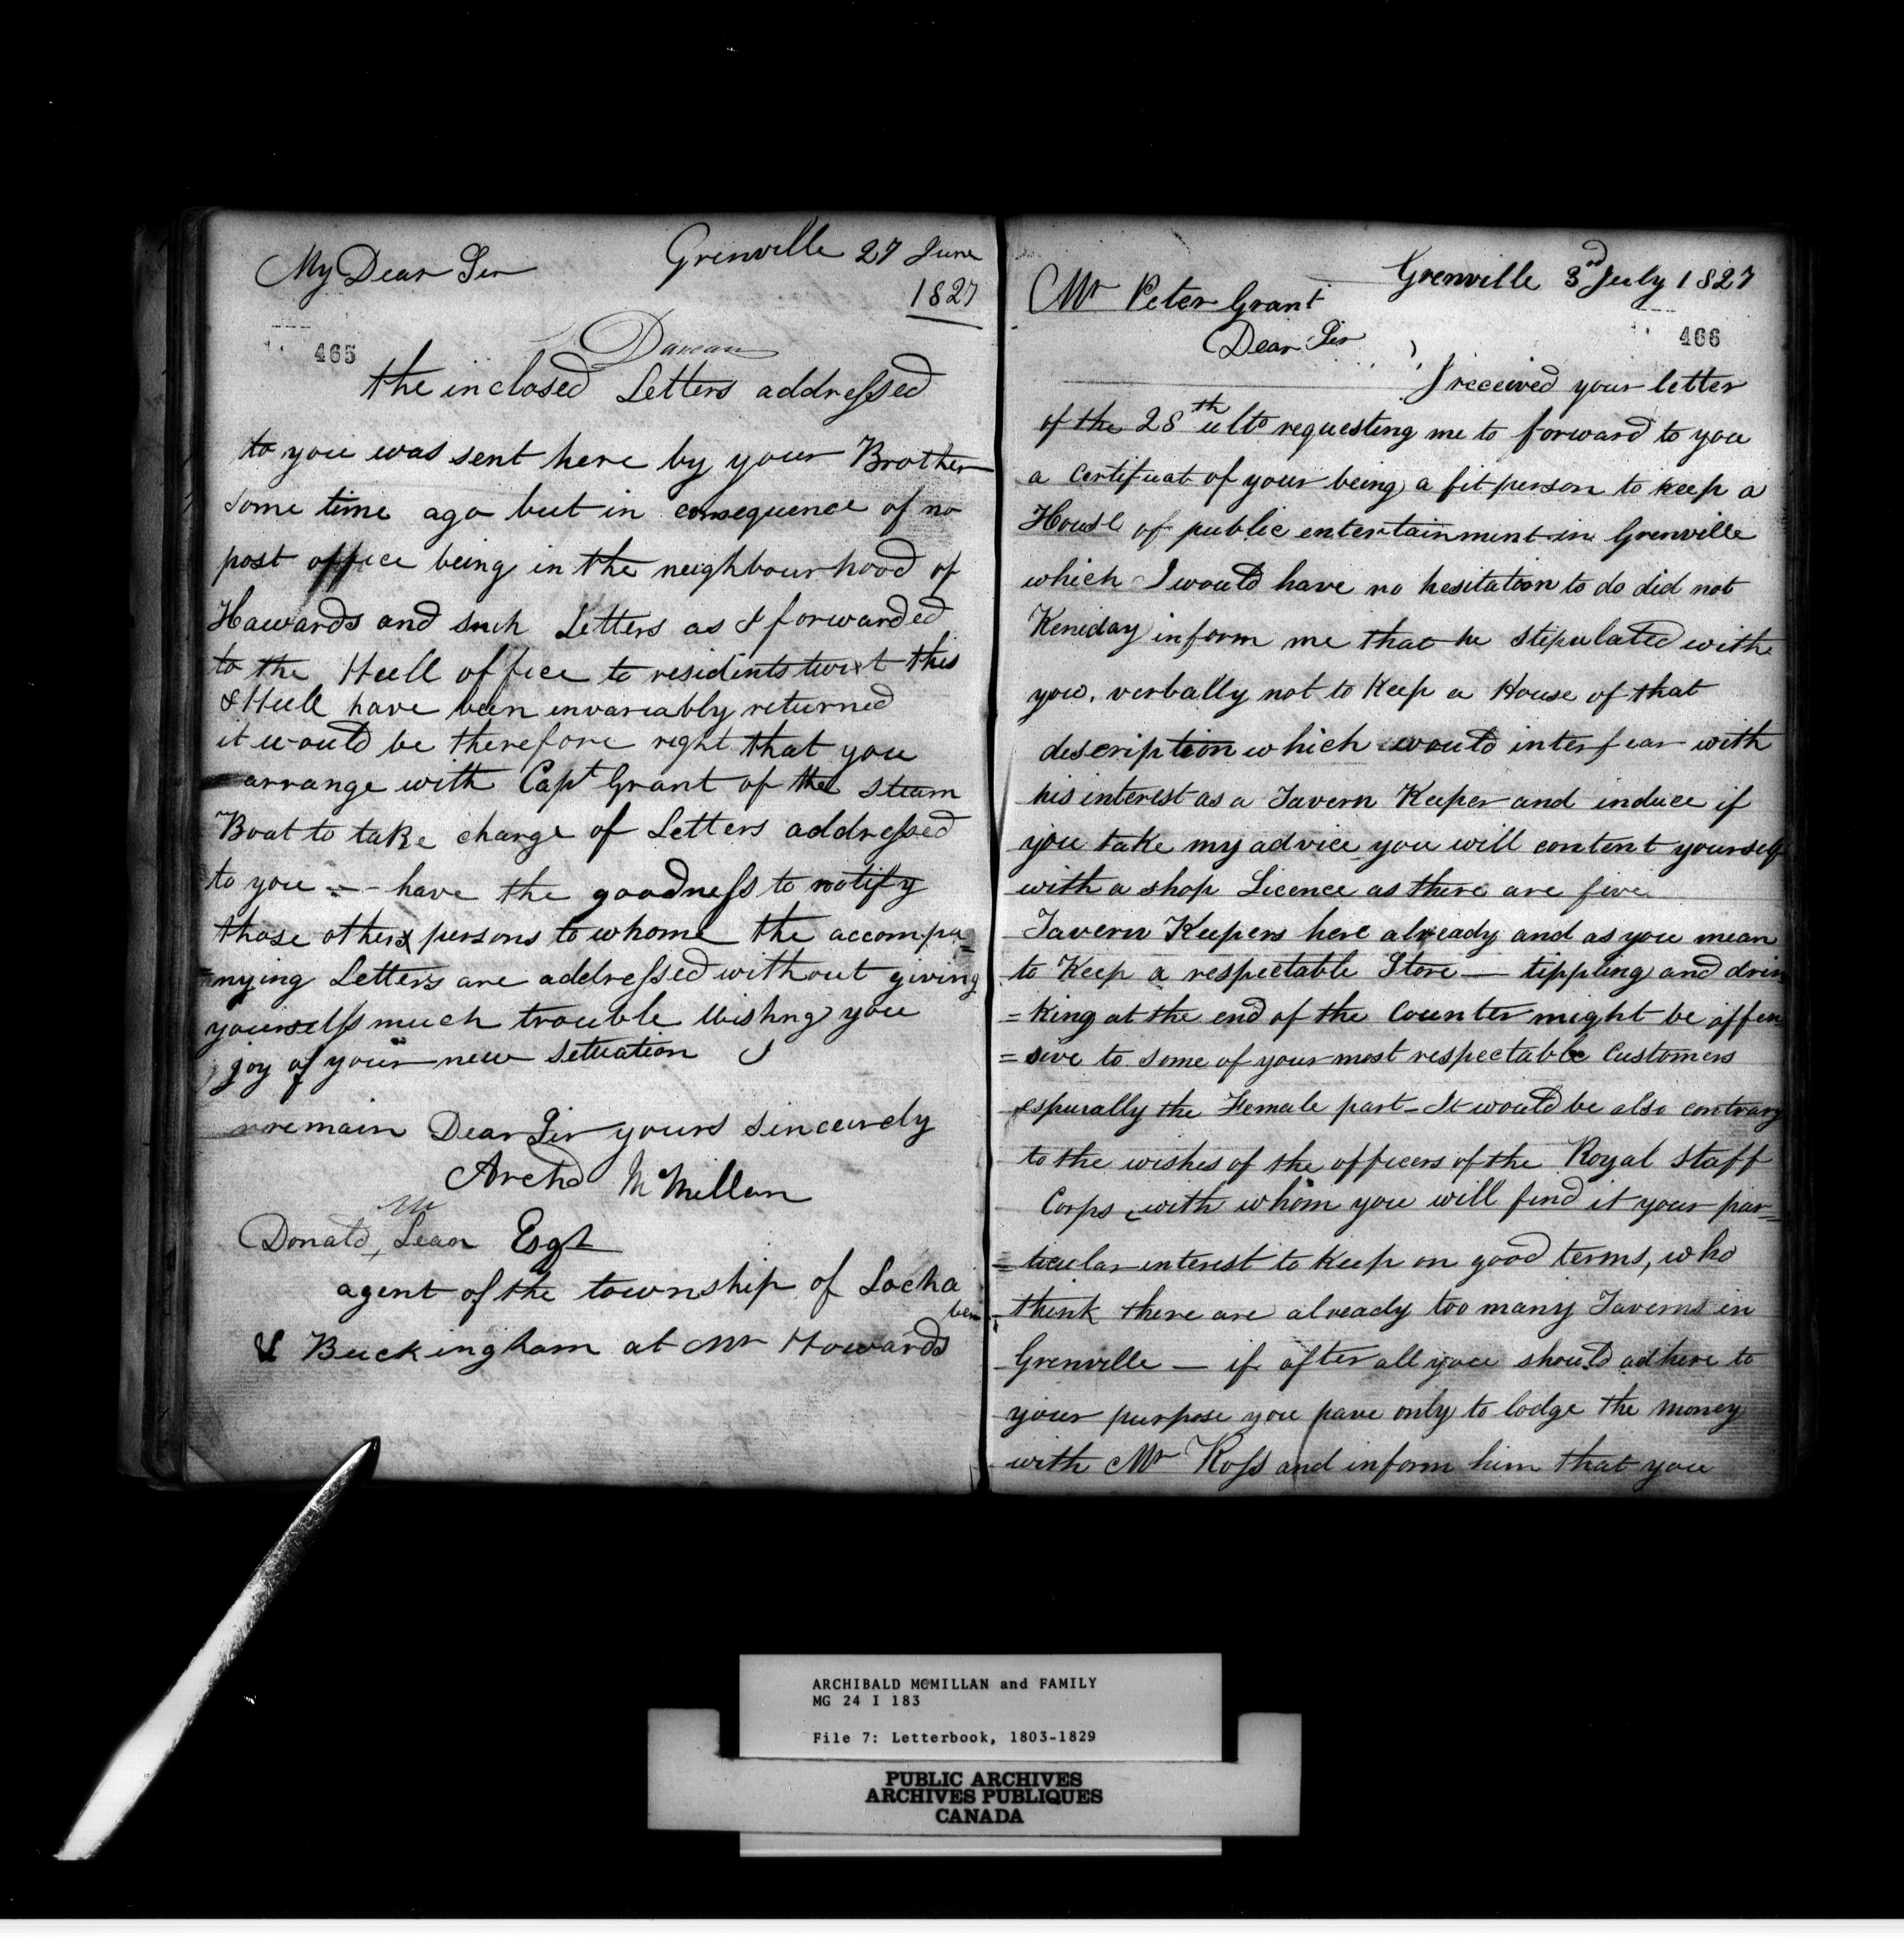 My Dear Sir Grenville 27 June
1827
465
Duncan
the inclosed Letters addressed
to you was sent here by your Brother
some time ago but in consequence of no
post office being in the neighbourhood of
Hawards and such Letters as I forwarded
to the Hull office to residents twixt this
& Hull have been invariably returned
it would be therefore right that you
arrange with Capt Grant of the Steam
Boat to take charge of Letters addressed
to you - - have the goodness to notify
those others persons to whome the accompa=
=nying Letters are addressed without giving
yourself much trouble Wishng you
joy of your new Setuation I
remain Dear Sir yours sincerely
Archd McMillan
Donald McLean Esqr
agent of the township of Locha
ber
& Buckingham at Mr Howards
Grenville 3rd July 1827
Mr Peter Grant
466
Dear Sir
I received your letter
of the 28th ulto requesting me to forward to you
a certificat of your being a fit person to keep a
House of public entertainment in Grenville
which I would have no hesitation to do did not
Keneday inform me that he stipulated with
you, verbally not to Keep a House of that
description which would interfear with
his interest as a Tavern Keeper and induce if
you take my advice you will content yourself
with a shop Licence as there are five
Tavern Keepers here already and as you mean
to Keep a respectable Store — tippling and drin
=king at the end of the Counter might be offen
=sive to some of your most respectable Customers
especially the Female part - It would be also contrary
to the wishes of the officers of the Royal Staff
Corps, with whom you will find it your par=
=ticular interest to Keep on good terms, who
think there are already too many Taverns in
Grenville — if after all you should adhere to
your purpose you have only to lodge the money
with Mr Ross and inform him that you
ARCHIBALD MCMILLAN and FAMILY
MG 24 I 183
File 7: Letterbook, 1803-1829
PUBLIC ARCHIVES
ARCHIVES PUBLIQUES
CANADA